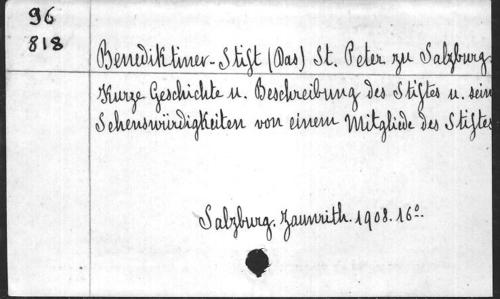 96
818
Benediktiner-Stift (Das) St. Peter zu Salzburg.
Kurze Geschichte u. Beschreibung des Stiftes u. sein
Sehenswürdigkeiten von einem Mitgliede des Stiftes
Salzburg. Zaunrith. 1908. 16°.